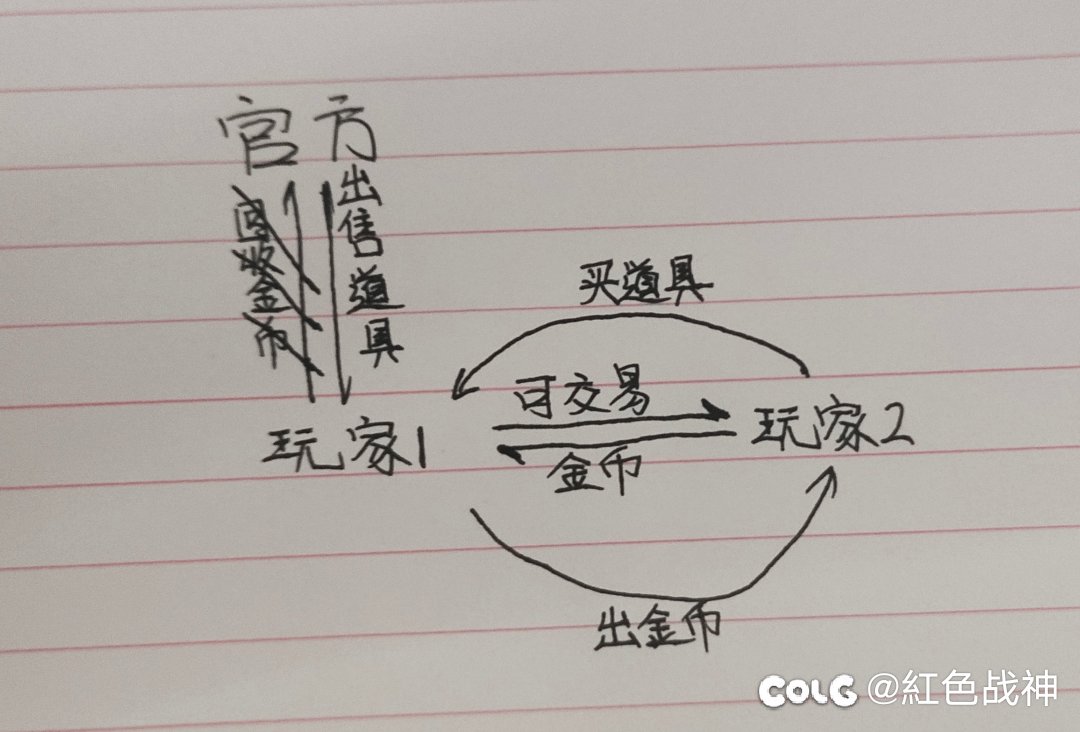 官方
回收金币
出售道具
买道具
可交易
玩家1
玩家2
金币
出金币
COLG @紅色战神